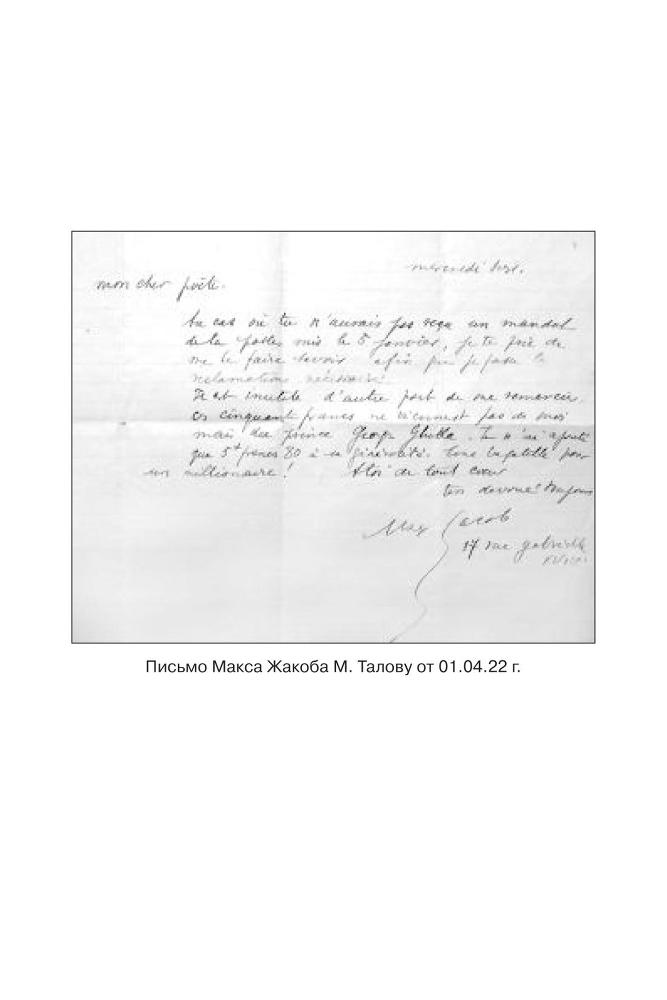 mercredi soir.
mon cher poète.
Au cas où tu n'aurais pas reçu un mandat
de la poste mis le 5 janvier, je te prie de
me le faire savoir afin que je fasse la
réclamation nécessaire.
Il est inutile d'autre part de me remercier
ces cinquante francs ne viennent pas de moi
mais du prince Georges Ghika. Je n'ai ajouté
que 5 francs 80 à sa générosité. Une bagatelle pour
un millionnaire! A toi de tout cœur
ton dévoué toujours
Max Jacob
17 rue Gabrielle
Письмо Макса Жакоба М. Талову от 01.04.22 г.